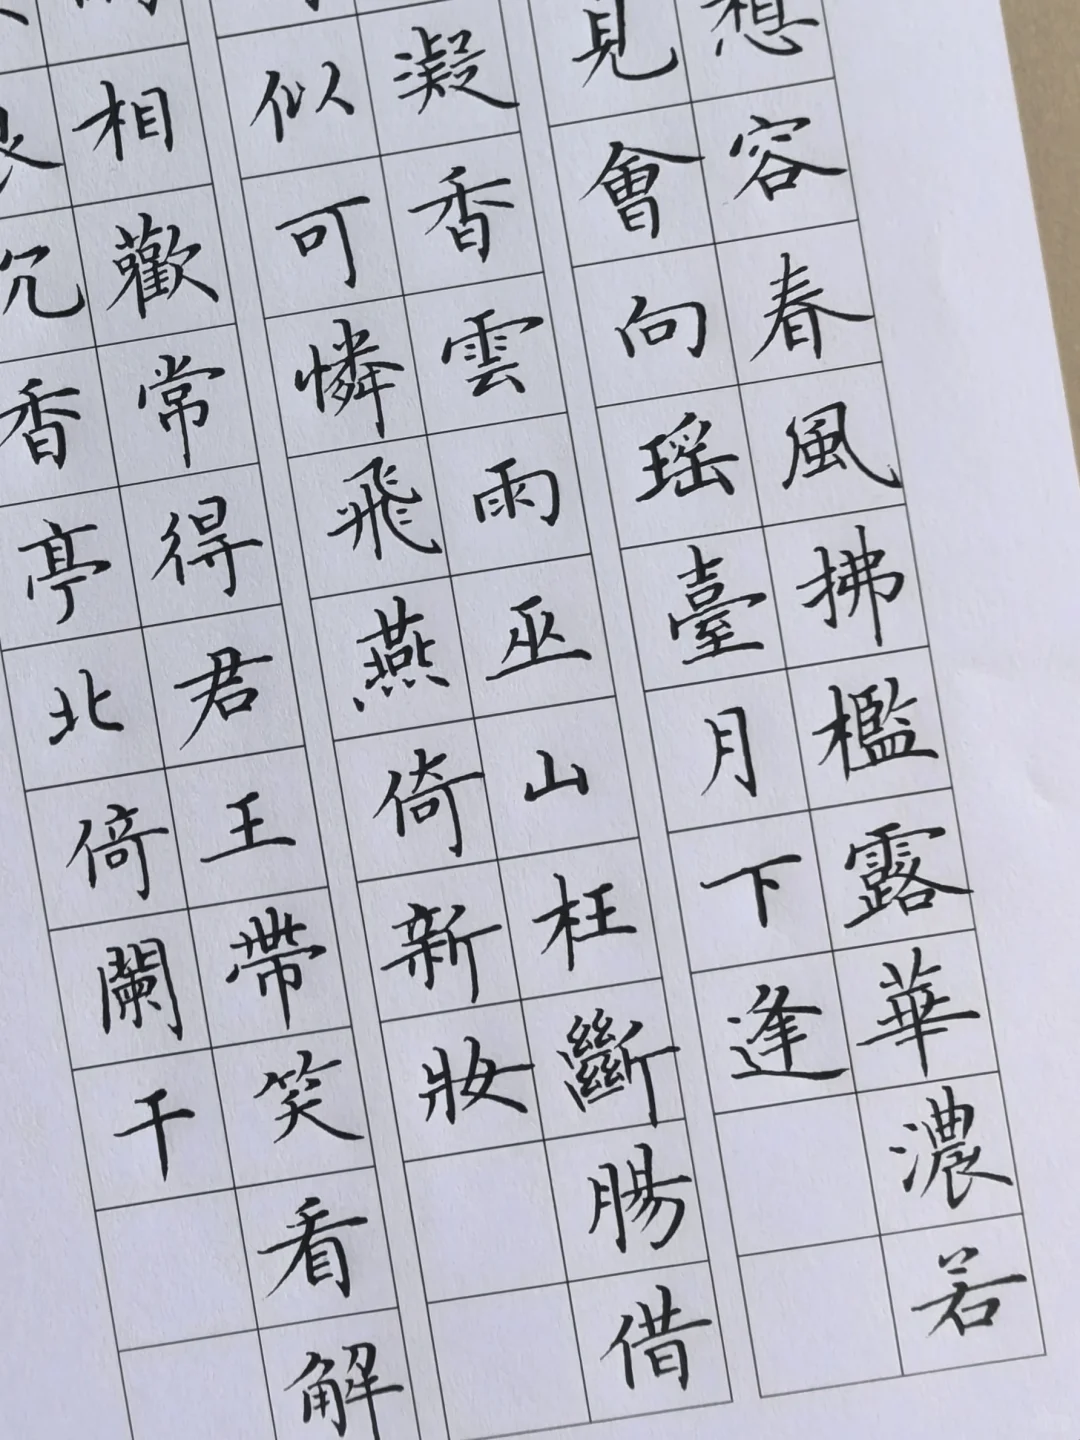 想容春風拂檻露華濃若
見會向瑶臺月下逢
凝香雲雨巫山枉斷腸借
似可憐飛燕倚新妝
相歡常得君王帶笑看解
沉香亭北倚闌干